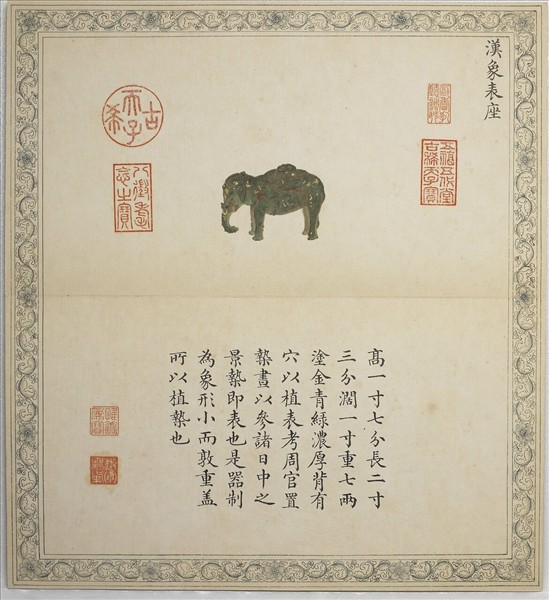 漢象表座
五福五代堂
古稀天子寶
古希天子
八徵耄
念之寶
高一寸七分長二寸
三分濶一寸重七兩
塗金青綠濃厚背有
穴以植表考周官置
槷晝以參諸日中之
景槷即表也是器制
為象形小而敦重盖
所以植槷也